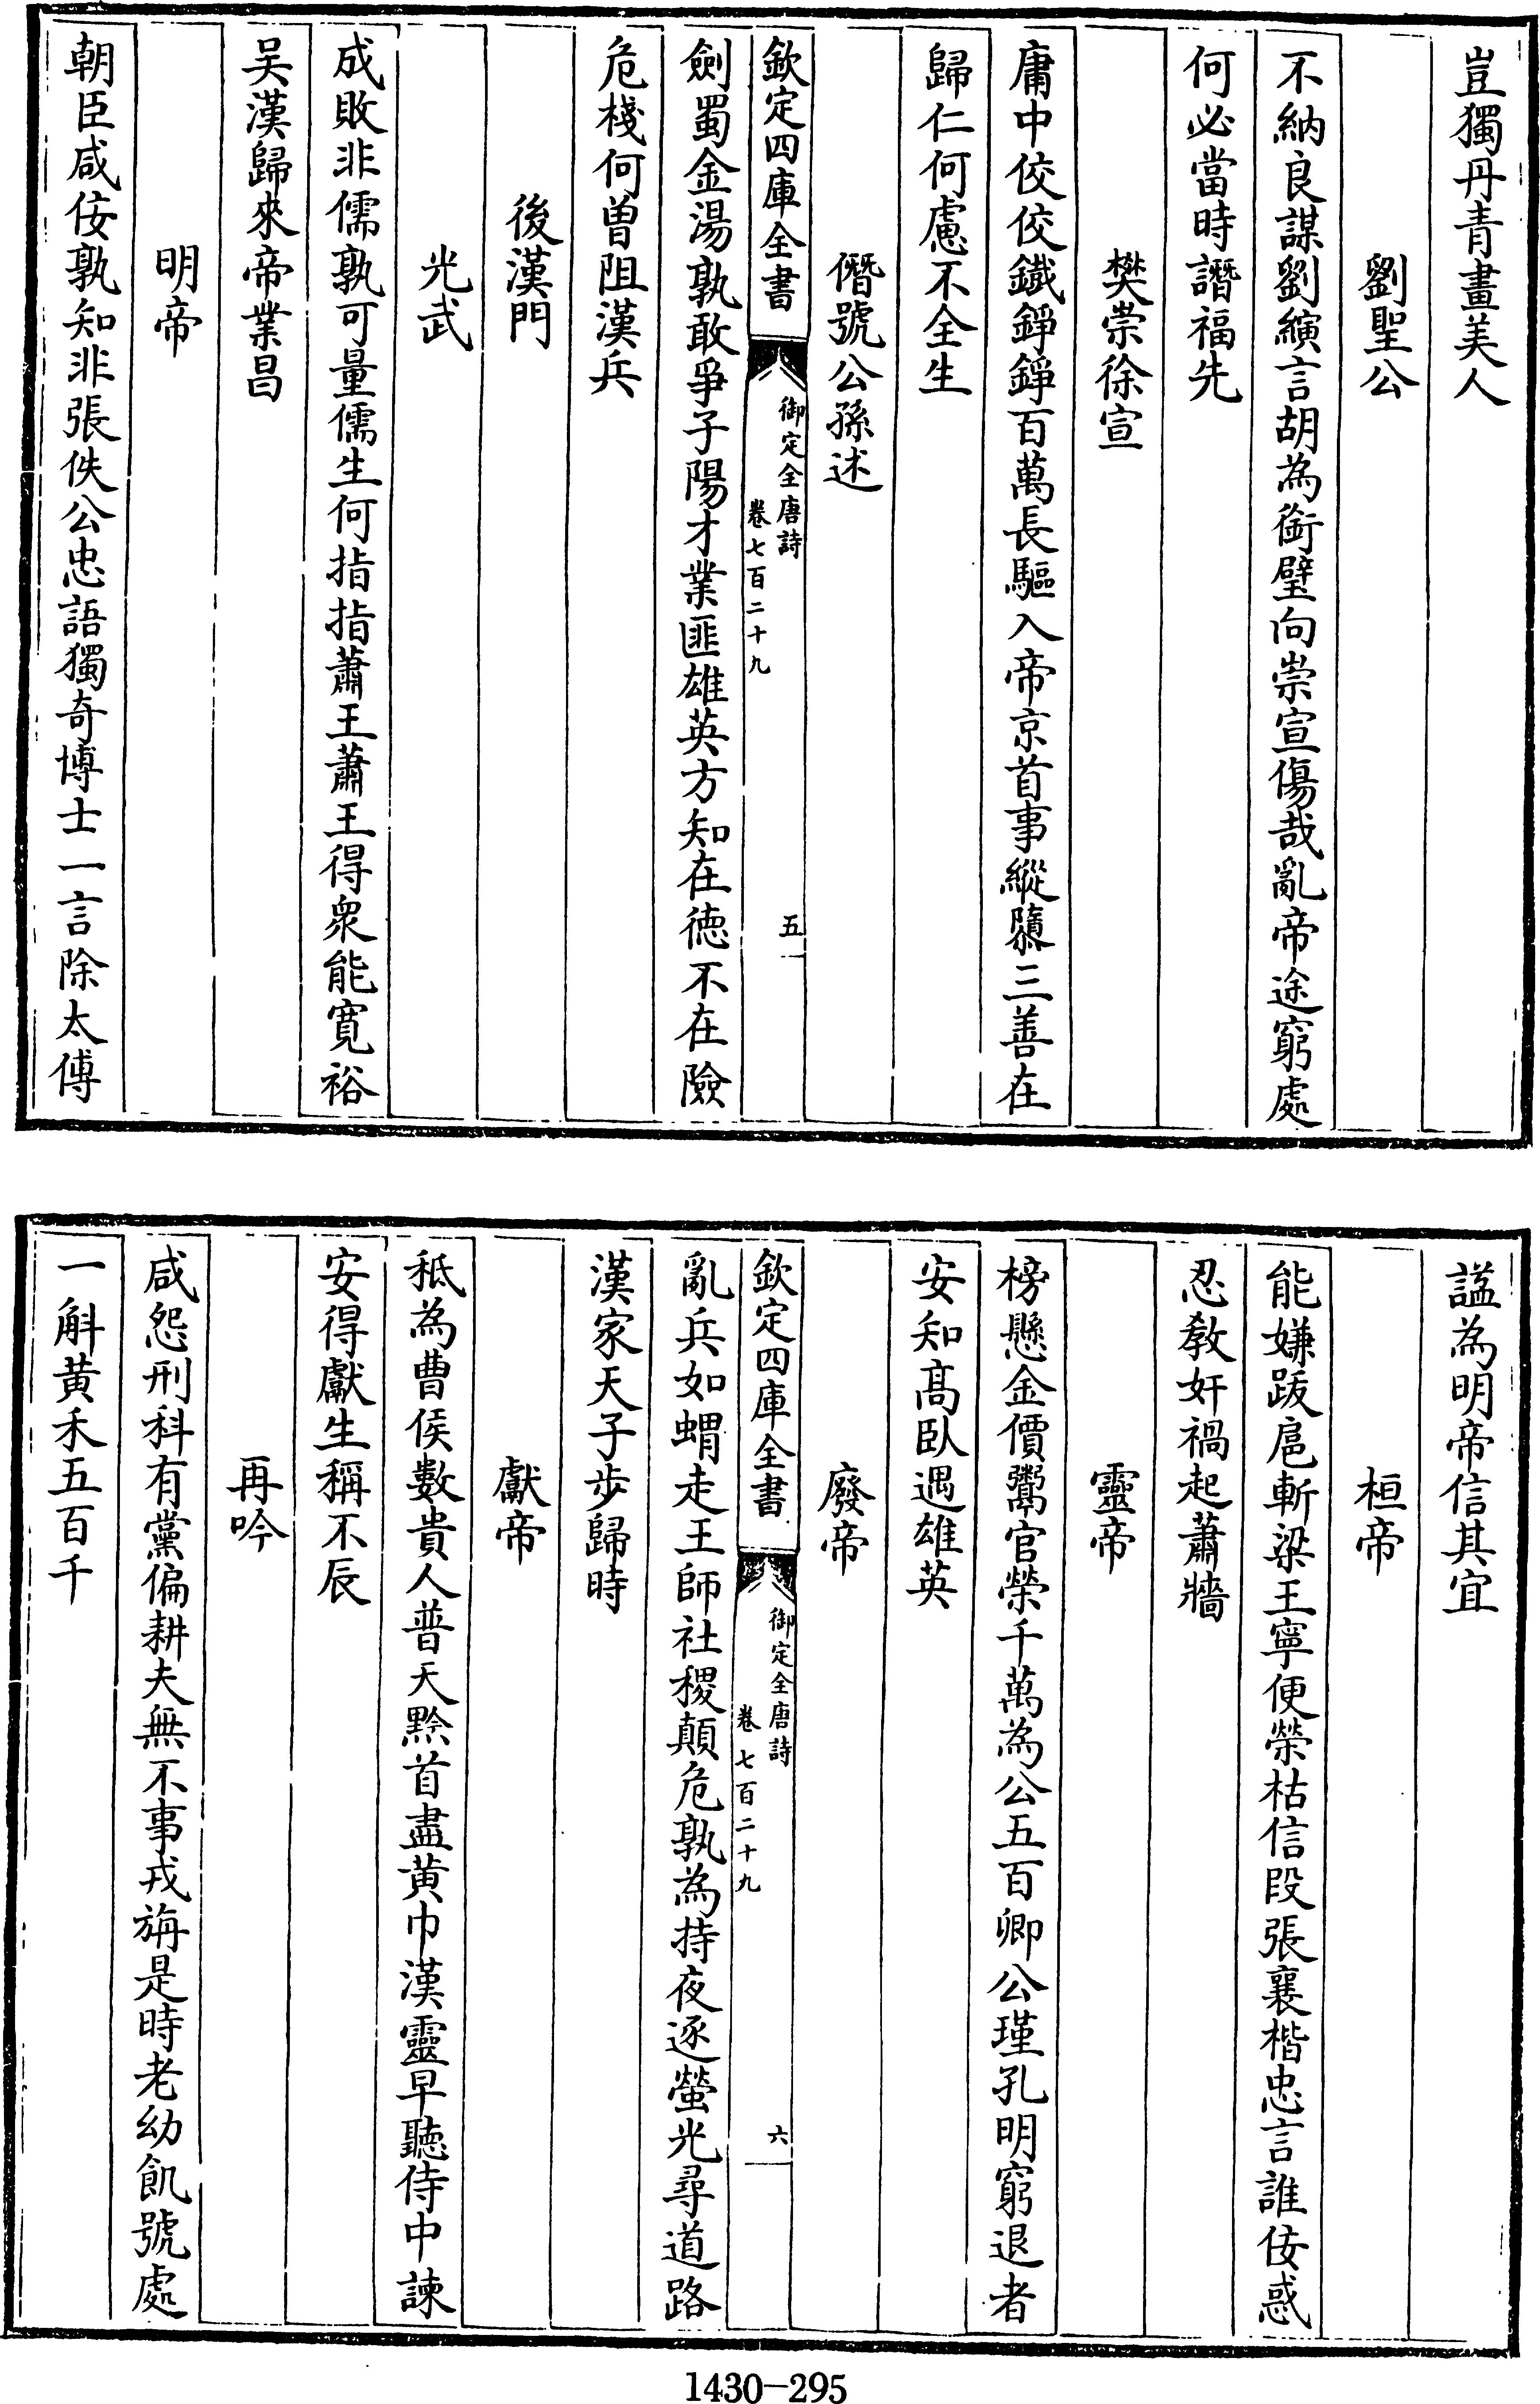 豈獨丹青畫美人
劉聖公
不納良謀劉縯言胡為銜璧向崇宣傷哉亂帝途窮處
何必當時譖福先
樊崇徐宣
庸中佼佼鐵錚錚百萬長驅入帝京首事縱隳三善在
歸仁何慮不全生
僭號公孫述
欽定四庫全書
御定全唐詩
卷七百二十九
五
劍蜀金湯孰敢爭子陽才業匪雄英方知在德不在險
危棧何曾阻漢兵
後漢門
光武
成敗非儒孰可量儒生何指指蕭王蕭王得衆能寬裕
吴漢歸來帝業昌
明帝
朝臣咸佞孰知非張佚公忠語獨奇博士一言除太傅
諡為明帝信其宜
桓帝
能嫌跋扈斬梁王寧便榮枯信段張襄楷忠言誰佞惑
忍教奸禍起蕭牆
靈帝
榜懸金價鬻官榮千萬為公五百卿公瑾孔明窮退者
安知髙臥遇雄英
廢帝
欽定四庫全書
御定全唐詩
卷七百二十九
六
亂兵如蝟走王師社稷顛危孰為持夜逐螢光尋道路
漢家天子步歸時
獻帝
秪為曹侯數貴人普天黔首盡黄巾漢靈早聽侍中諫
安得獻生稱不辰
再吟
咸怨刑科有黨偏耕夫無不事戎旃是時老幼飢號處
一斛黄禾五百千
1430-295